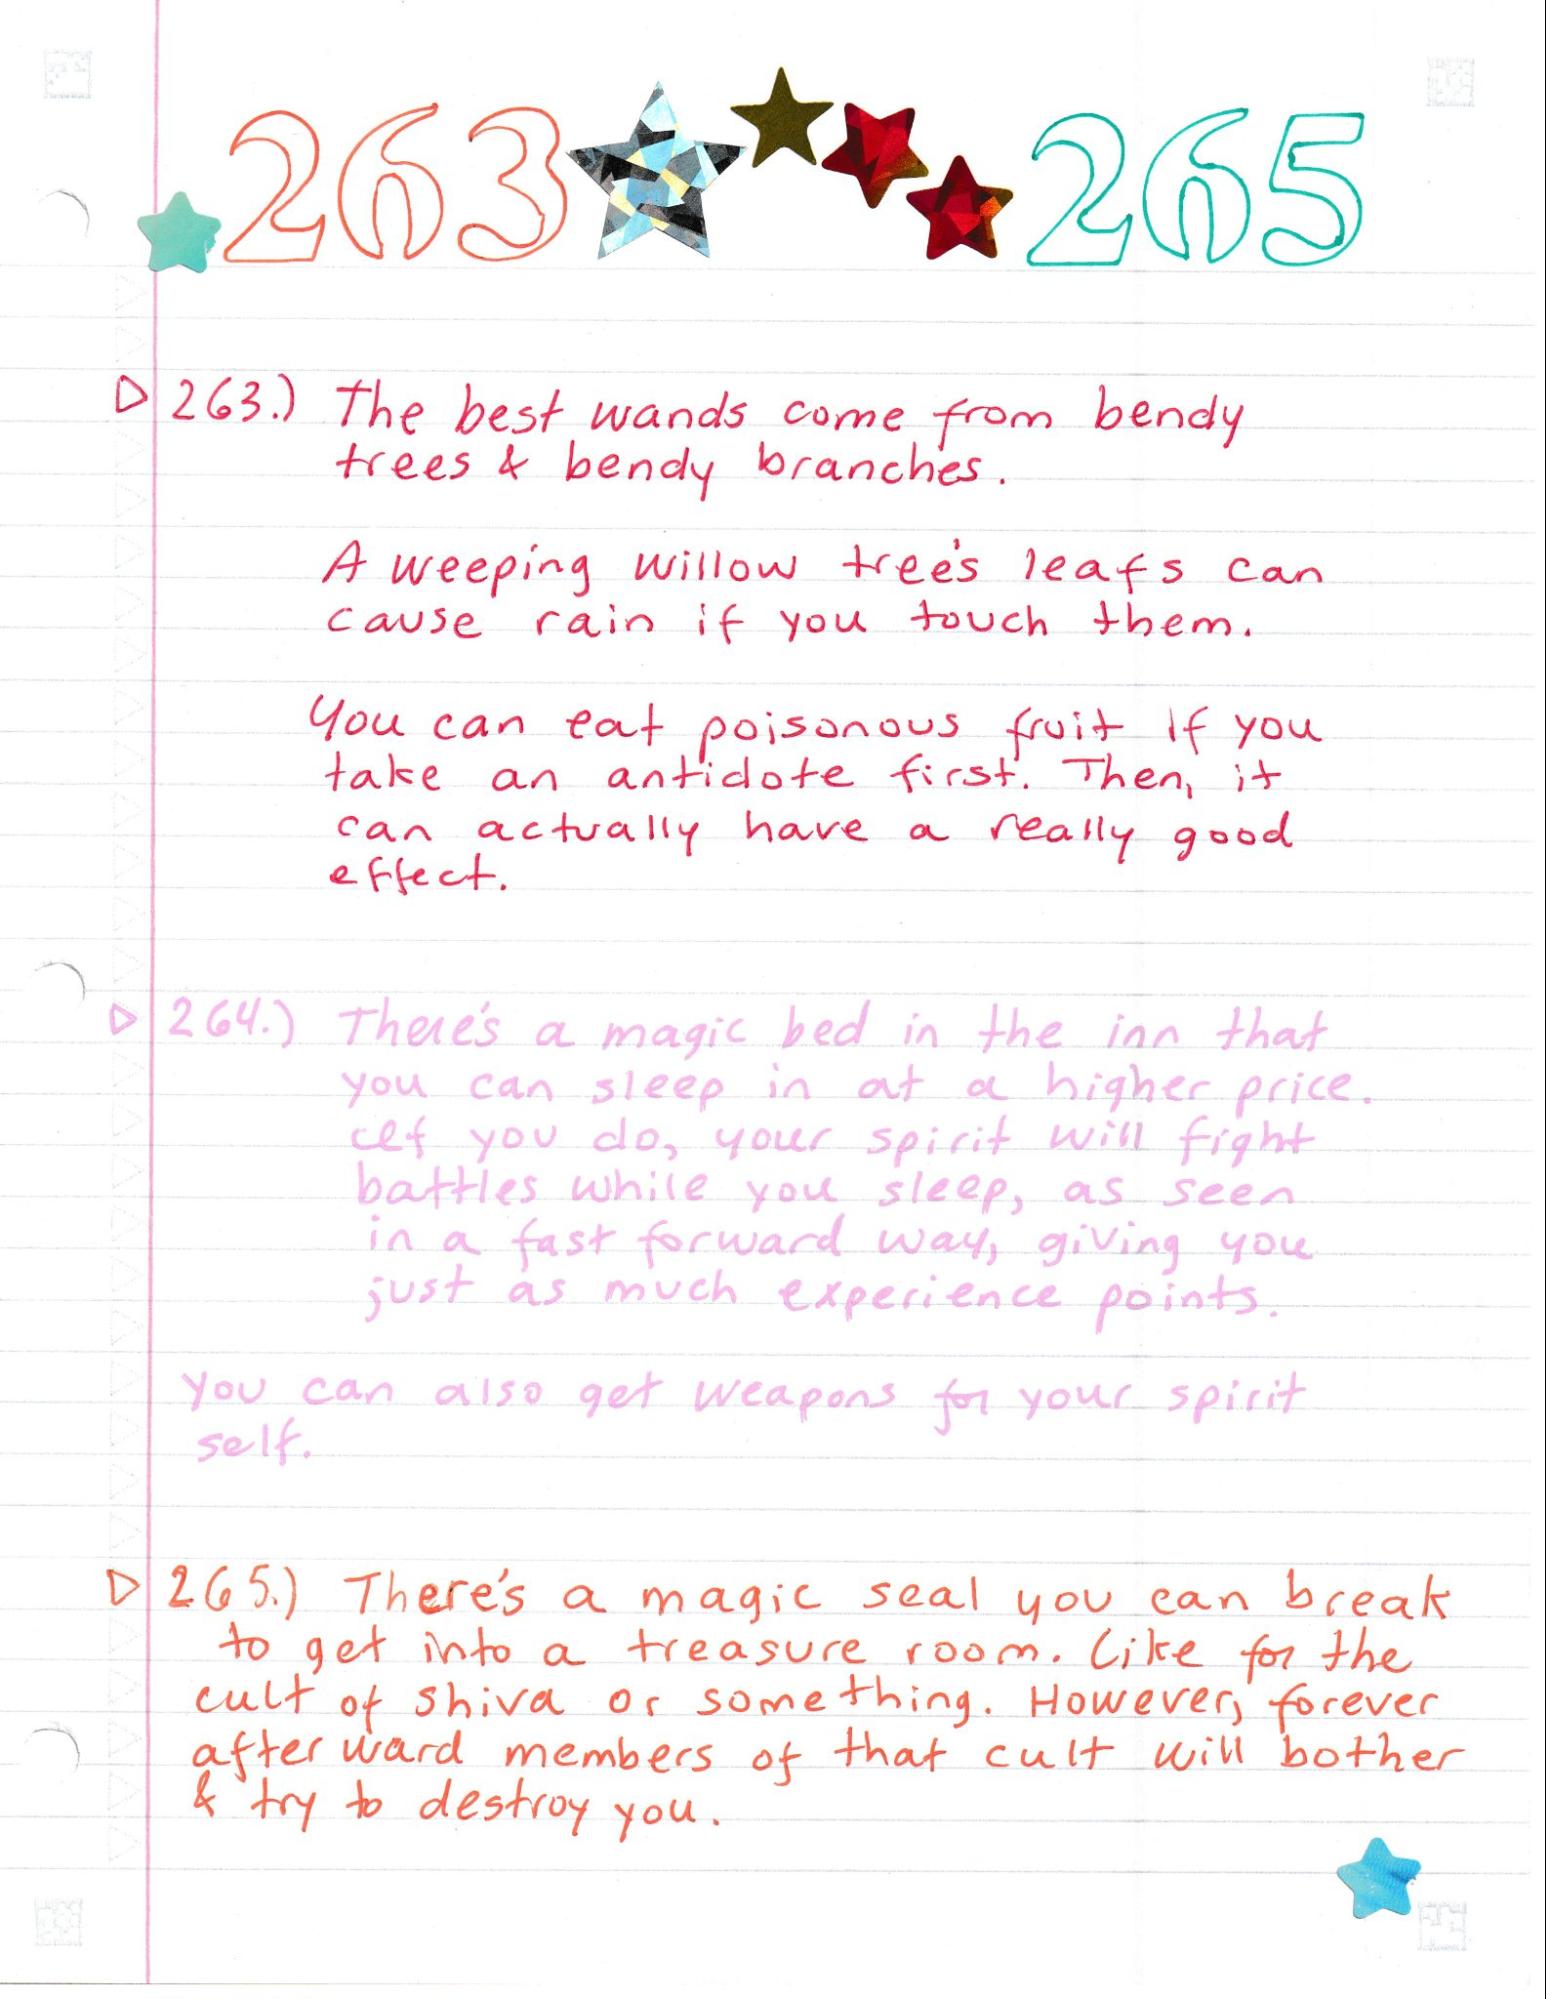 263 265
263.) The best wands come from bendy
trees & bendy branches.
A weeping willow tree's leafs can
cause rain if you touch them.
You can eat poisonous fruit if you
take an antidote first. Then, it
can actually have a really good
effect.
264.) There's a magic bed in the inn that
you can sleep in at a higher price.
If you do, your spirit will fight
battles while you sleep, as seen
in a fast forward way, giving you
just as much experience points.
You can also get weapons for your spirit
self.
265.) There's a magic seal you can break
to get into a treasure room. Like for the
cult of shiva or something. However, forever
afterward members of that cult will bother
& try to destroy you.